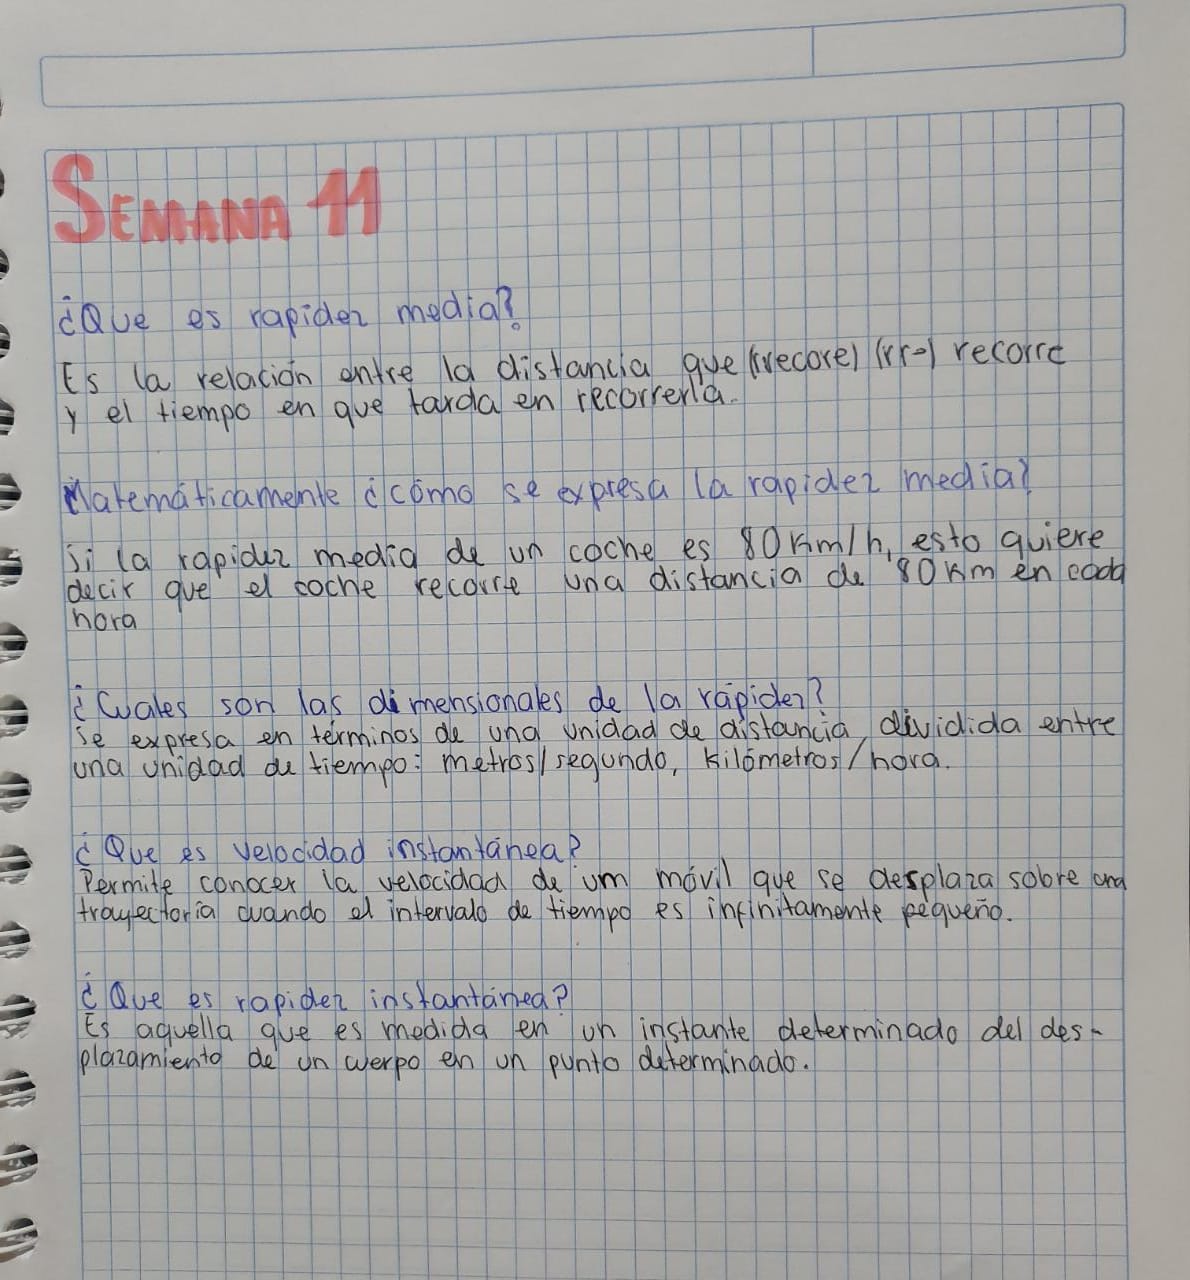 SEMANA 11
¿Que es rapidez media?
Es la relación entre la distancia que (rrecore) (rr-) recorre
y el tiempo en que tarda en recorrerla.
Matemáticamente ¿cómo se expresa la rapidez media?
Si la rapidez media de un coche es 80 Km/h, esto quiere
decir que el coche recorre una distancia de 80 Km en cada
hora
¿Cuales son las dimensionales de la rápidez?
Se expresa en términos de una unidad de distancia, dividida entre
una unidad de tiempo: metros/segundo, Kilómetros/hora.
¿Que es velocidad instantánea?
Permite conocer la velocidad de um móvil que se desplaza sobre una
trayectoria cuando el intervalo de tiempo es infinitamente pequeño.
¿Que es rapidez instantánea?
Es aquella que es medida en un instante determinado del des-
plazamiento de un cuerpo en un punto determinado.